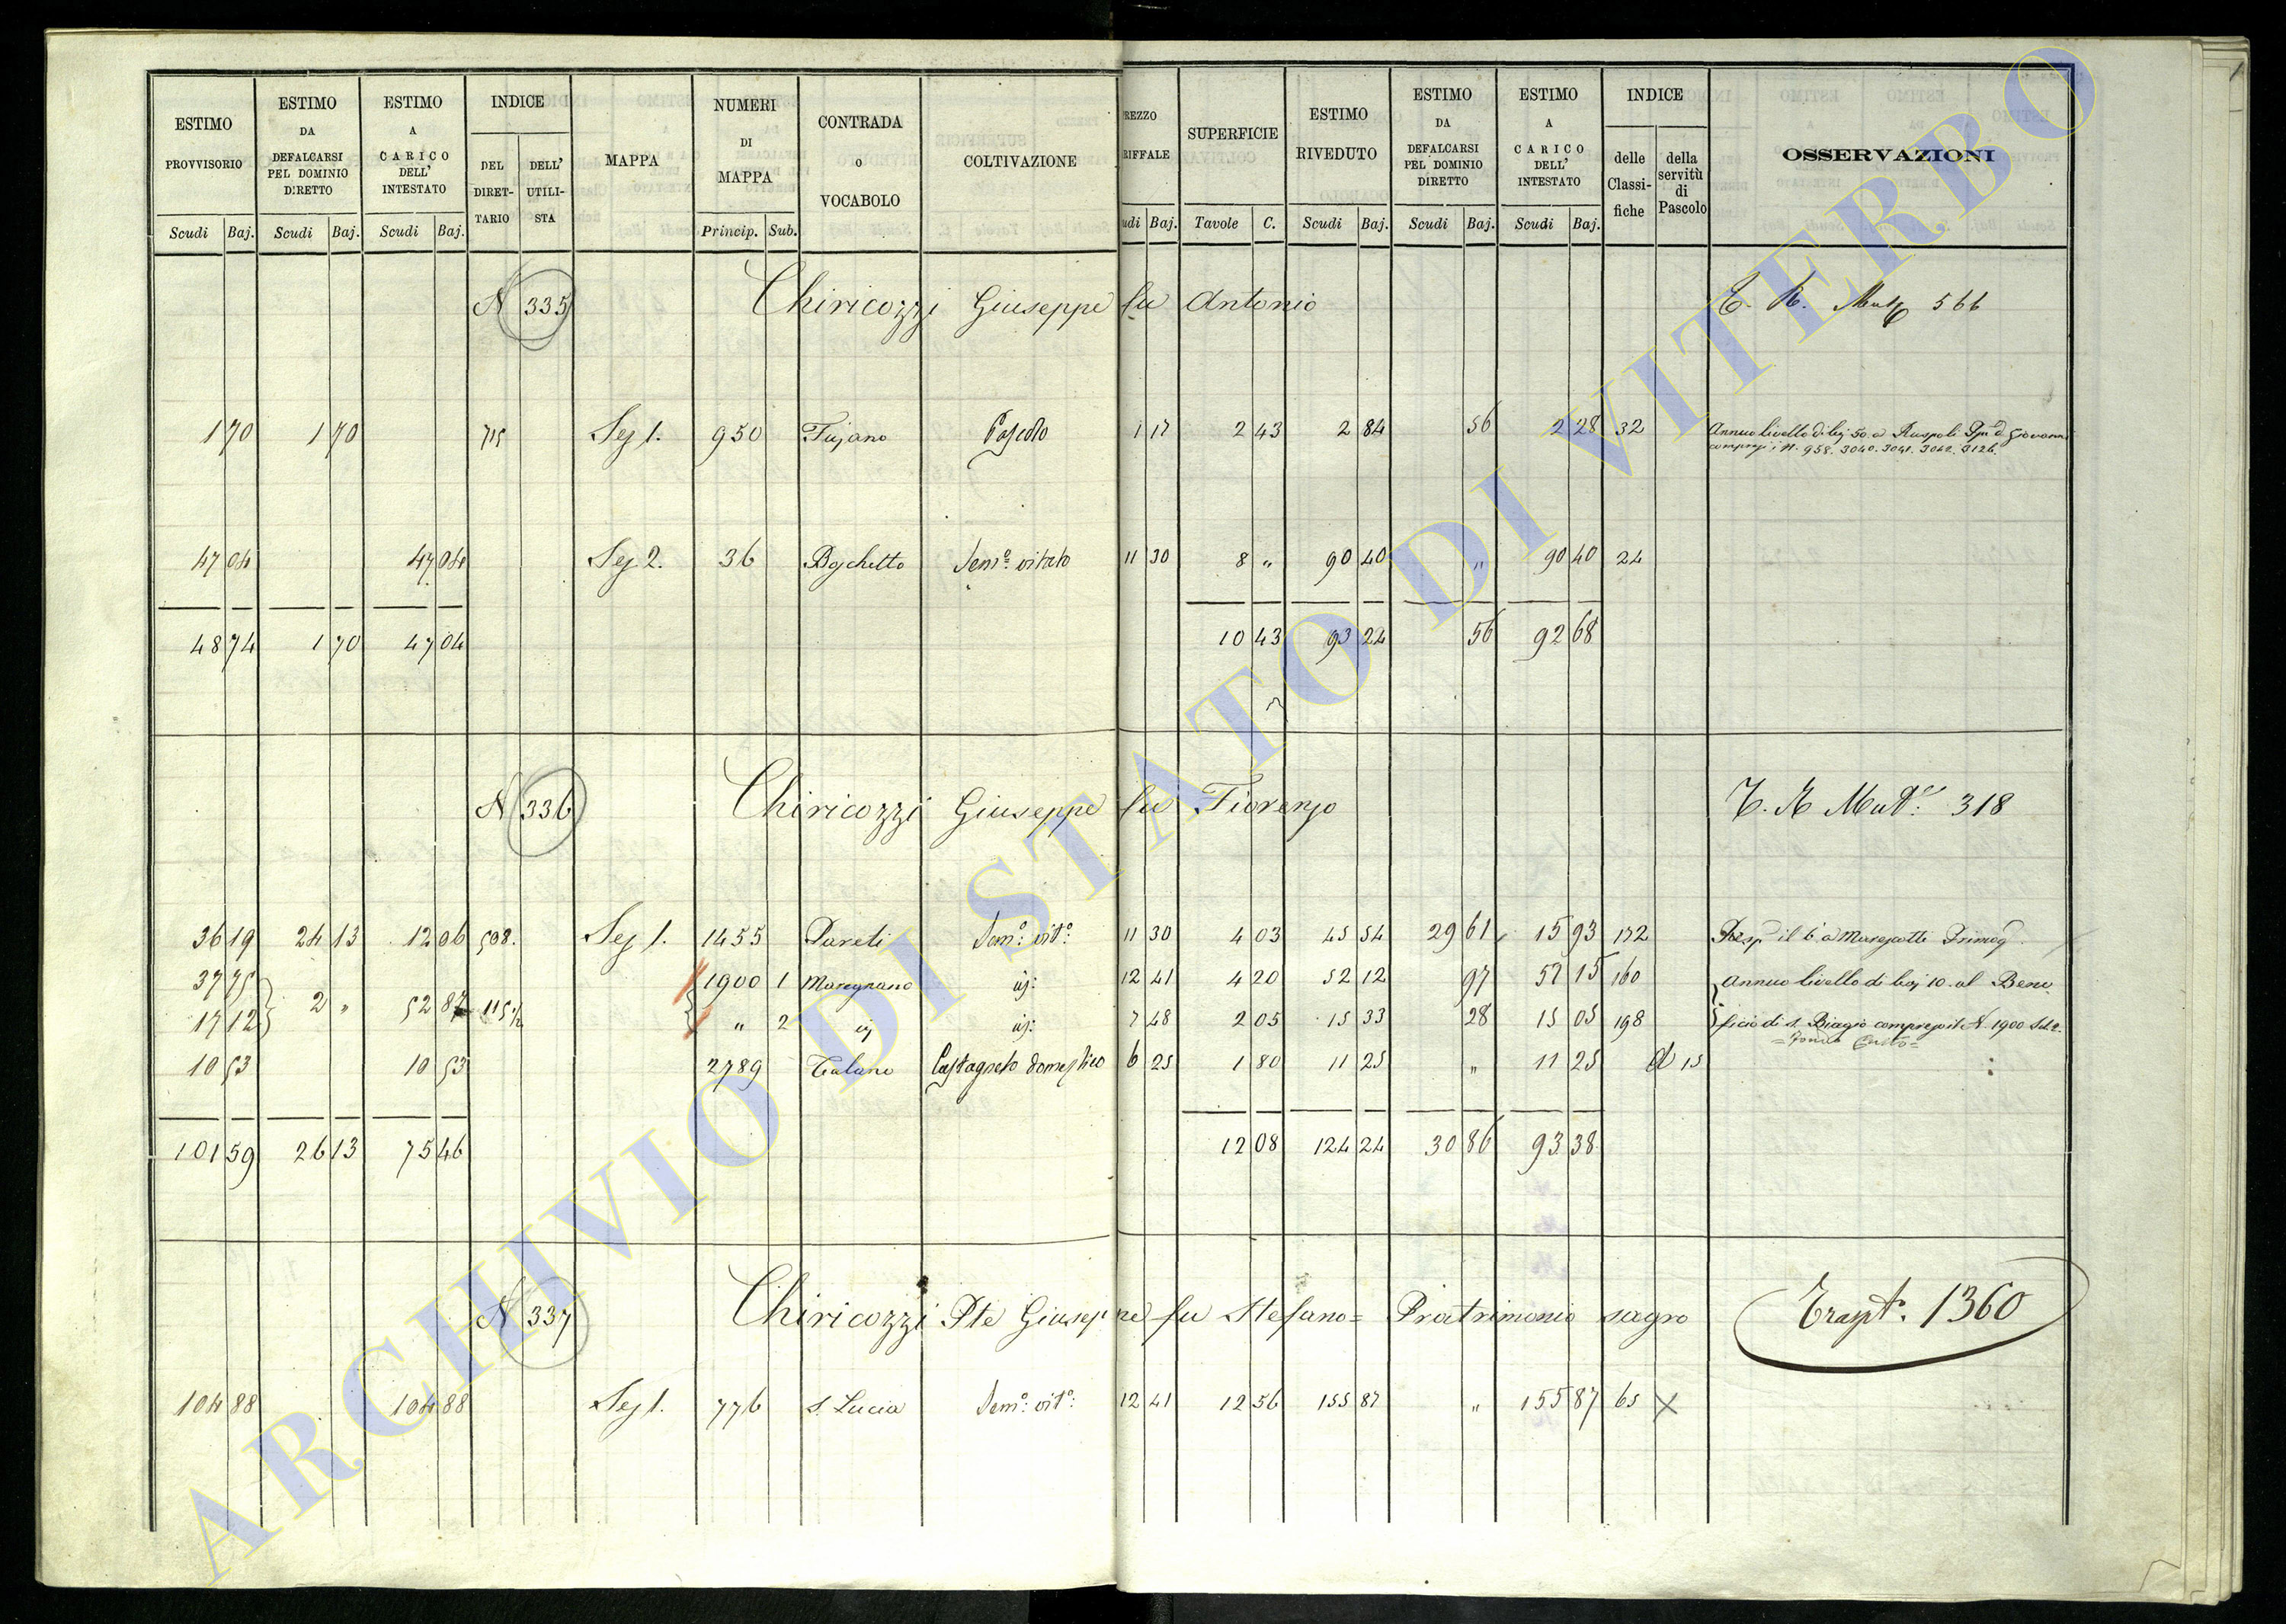 ESTIMO PROVVISORIO | ESTIMO DA DEFALCARSI PEL DOMINIO DIRETTO | ESTIMO A CARICO DELL' INTESTATO | INDICE | MAPPA | NUMERI DI MAPPA | CONTRADA o VOCABOLO | COLTIVAZIONE | REZZO RIFFALE | SUPERFICIE | ESTIMO RIVEDUTO | ESTIMO DA DEFALCARSI PEL DOMINIO DIRETTO | ESTIMO A CARICO DELL' INTESTATO | INDICE | OSSERVAZIONI
DEL DIRETTARIO | DELL' UTILISTA | delle Classifiche | della servitù di Pascolo
Scudi Baj. | Scudi Baj. | Scudi Baj. | Princip. Sub. | udi Baj. | Tavole C. | Scudi Baj. | Scudi Baj. | Scudi Baj.
N 335 Chiricozzi Giuseppe fu Antonio 566
1 70 1 70 715 Sez 1. 950 Fusano Pascolo 1 17 2 43 2 84 56 2 28 32 Annuo livello di baj 50 a Ruspoli Giovanni
958. 3040. 3041. 3042. 3126.
47 04 47 04 Sez 2. 36 Boschetto Semo. vitato 11 30 8 " 90 40 " 90 40 24
48 74 1 70 47 04 10 43 93 24 56 92 68
N 336 Chiricozzi Giuseppe fu Fiorenzo 318
36 19 24 13 12 06 508. Sez 1. 1455 Pareti Semo: vito: 11 30 4 03 45 54 29 61 15 93 172 Resp. il 6.a Marescotti
37 75 2 " 52 87 115½ 1900 1 Maregnano 12 41 4 20 52 12 97 51 15 160 Annuo livello di baj 10 al Bene
17 12 " 2 7 48 2 05 15 33 28 15 05 198 ficio di S. Biagio N. 1900
10 53 10 53 2789 Talano Castagneto domestico 6 25 1 80 11 25 " 11 25 d 15
101 59 26 13 75 46 12 08 124 24 30 86 93 38
N 337 Chiricozzi Pte Giuseppe fu Stefano = Pratrimonio sagro Traspto. 1360
104 88 104 88 Sez 1. 776 S. Lucia Semo: vito: 12 41 12 56 155 87 " 155 87 65 X
ARCHIVIO DI STATO DI VITERBO